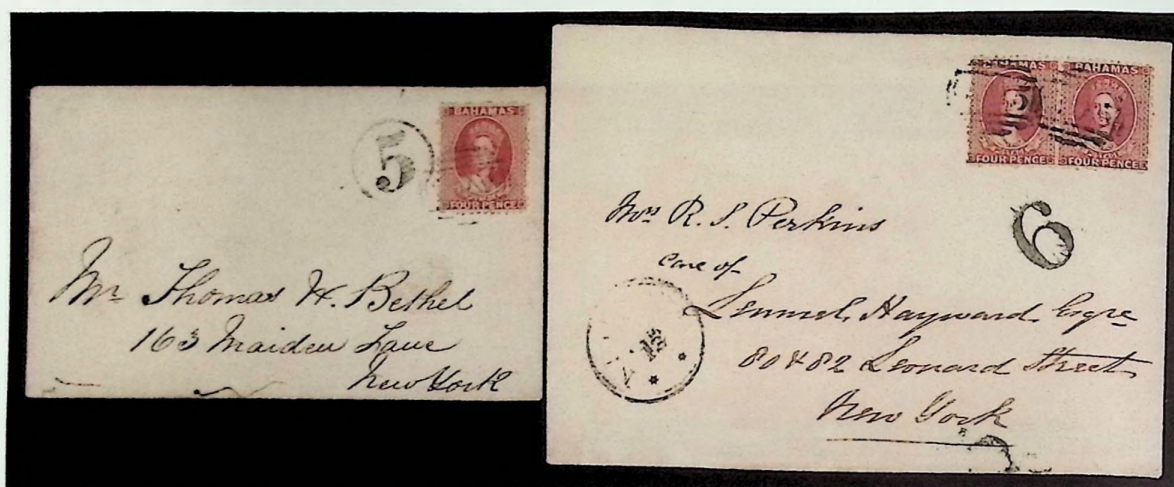 BAHAMAS
5
FOUR PENCE
Mr Thomas H. Bethel
163 Maiden Lane
New York
BAHAMAS BAHAMAS
FOUR PENCE FOUR PENCE
6
Mrs R. S. Perkins
care of
Lemuel Hayward Esqre
80 & 82 Leonard Street
New York